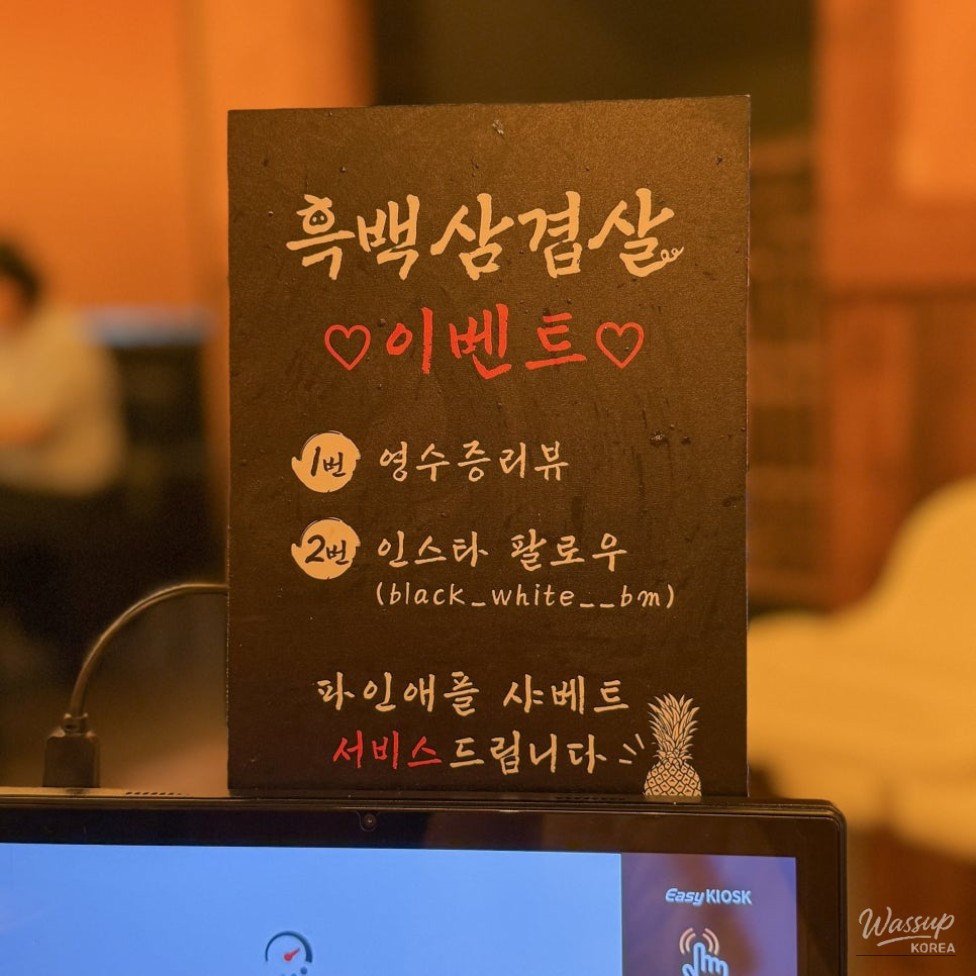 흑백삼겹살
♡이벤트♡
1번 영수증리뷰
2번 인스타 팔로우
(black_white__bm)
파인애플 샤베트
서비스드립니다
EasyKIOSK
Wassup
KOREA